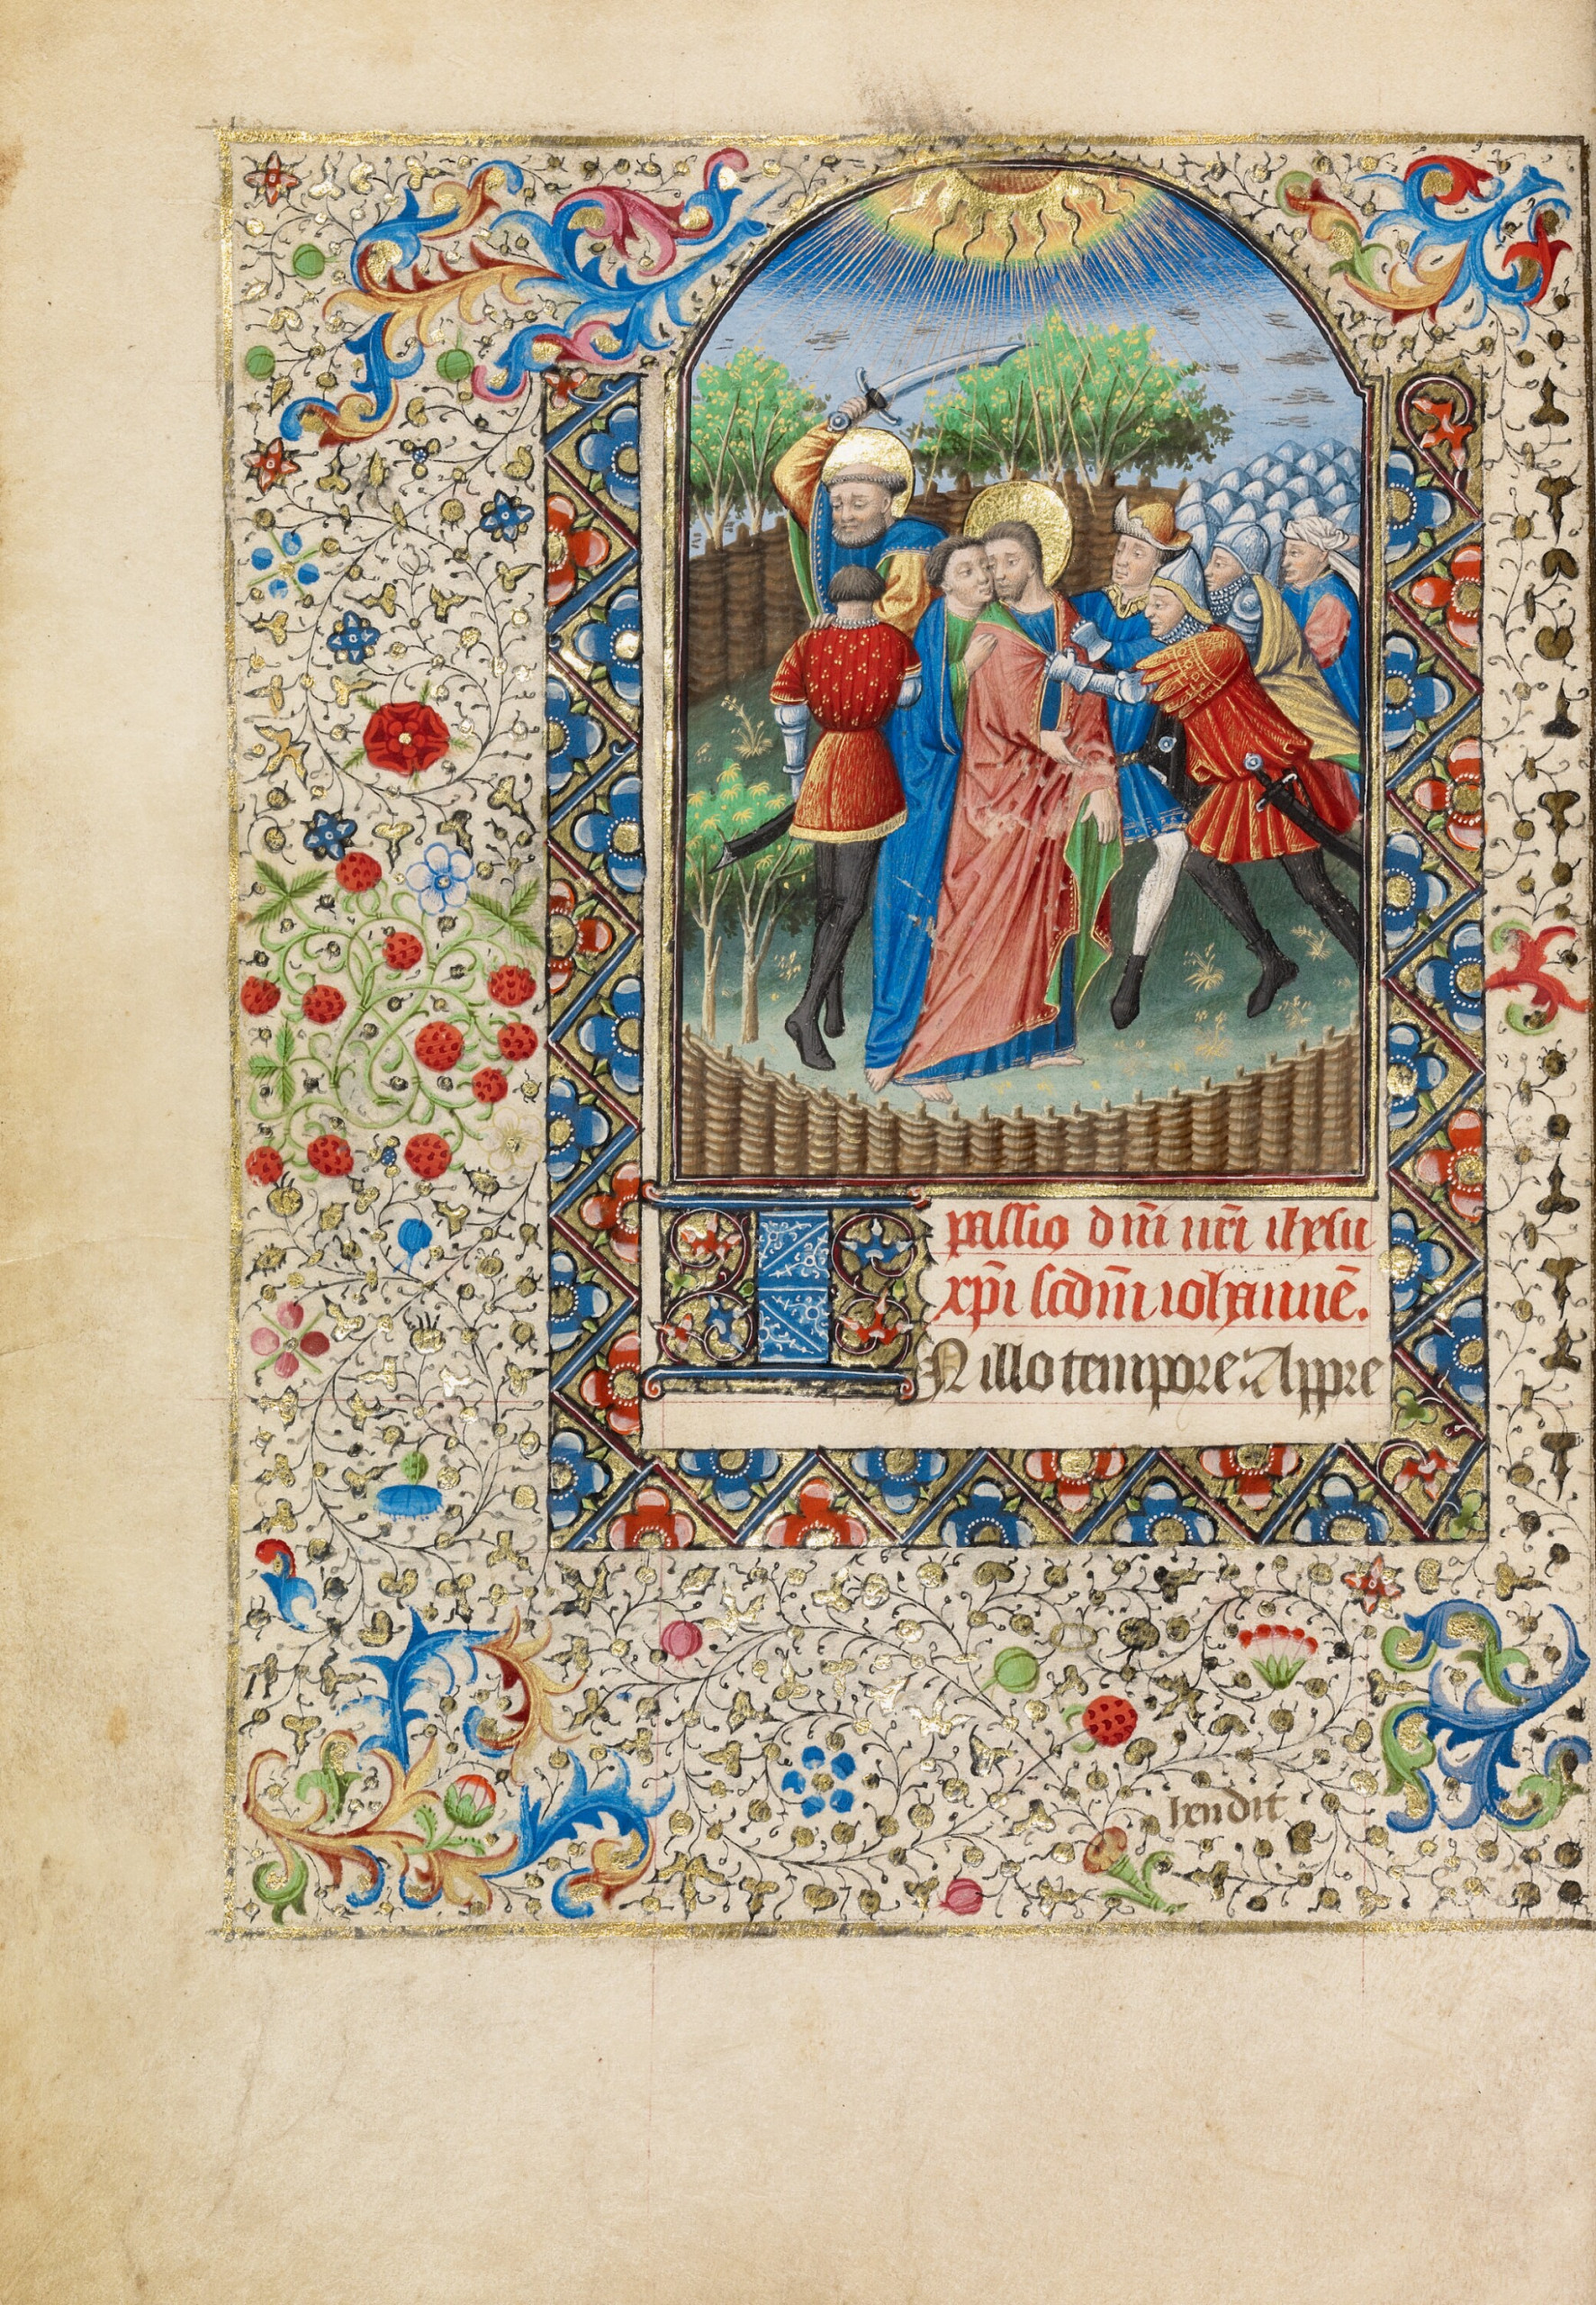 passio dn̄i nr̄i ihesu
xp̄i scdm̄ iohannē.
IN illo tempore: Appre
hendit